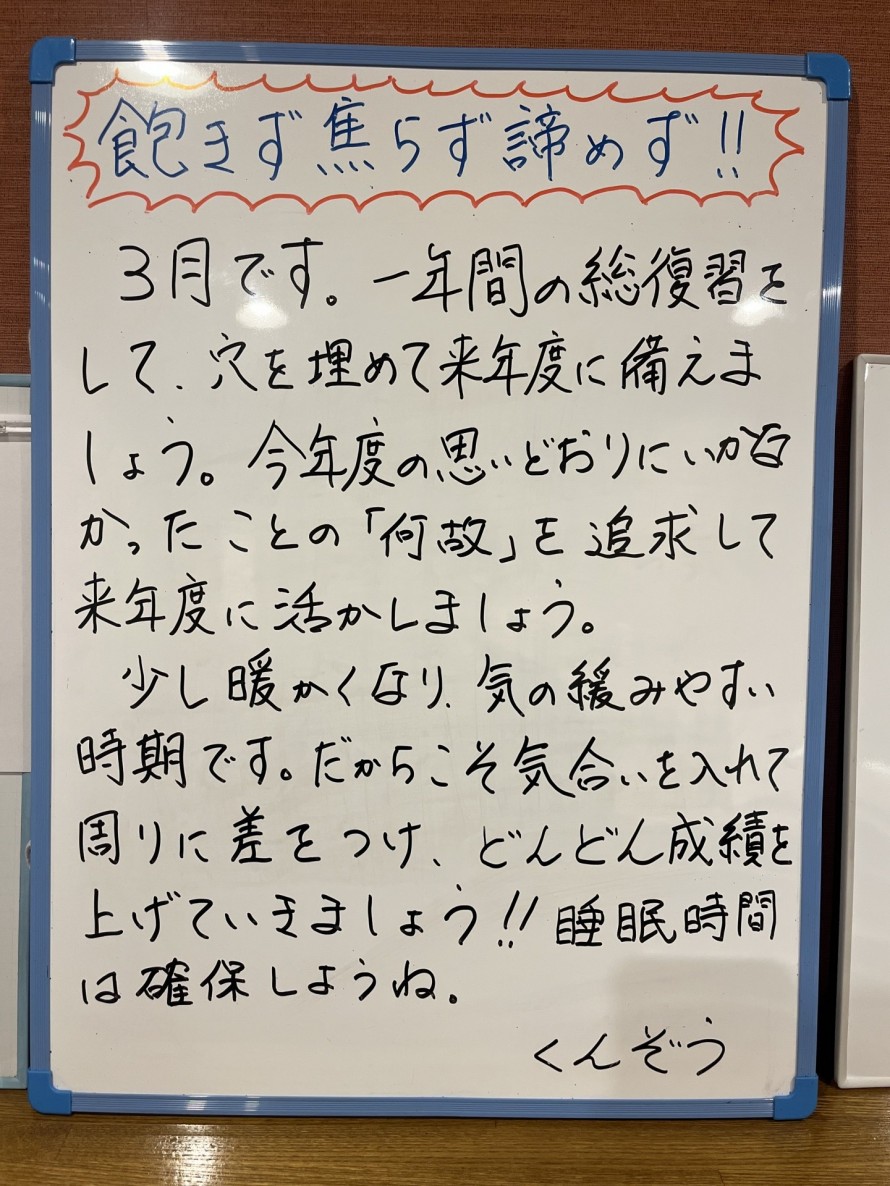 飽きず焦らず諦めず!!
3月です。一年間の総復習を
して、穴を埋めて来年度に備えま
しょう。今年度の思いどおりにいかな
かったことの「何故」を追求して
来年度に活かしましょう。
少し暖かくなり、気の緩みやすい
時期です。だからこそ気合いを入れて
周りに差をつけ、どんどん成績を
上げていきましょう!!睡眠時間
は確保しようね。
くんぞう